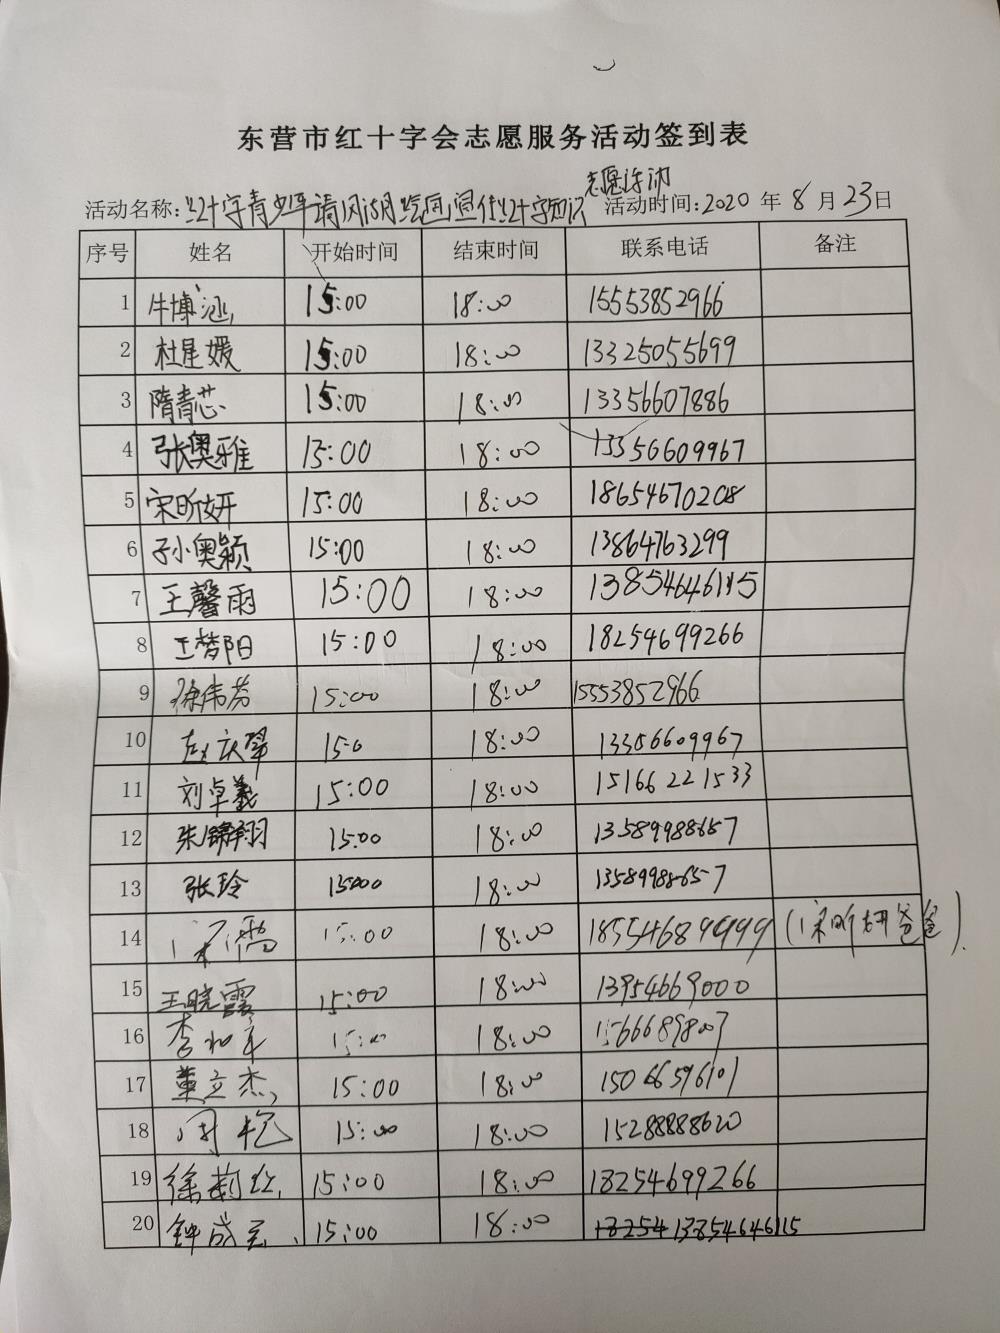 东营市红十字会志愿服务活动签到表
志愿活动
活动名称:红十字青少年清风湖月绘画宣传红十字知识 活动时间:2020 年 8 月 23 日
序号 姓名 开始时间 结束时间 联系电话 备注
1 牛博涵 15:00 18:00 15553852966
2 杜星媛 15:00 18:00 13325055699
3 隋青芯 15:00 18:00 13356607886
4 张奥雅 15:00 18:00 13356609967
5 宋昕妍 15:00 18:00 18654670208
6 孙奥颖 15:00 18:00 13864763299
7 王馨雨 15:00 18:00 13854646115
8 王梦阳 15:00 18:00 18254699266
9 徐伟芳 15:00 18:00 15553852966
10 赵庆翠 15:0 18:00 13356609967
11 刘卓羲 15:00 18:00 15166221533
12 张锦翔 15:00 18:00 13589988657
13 张玲 15:00 18:00 13589988657
14 宋儒 15:00 18:00 18554689999 (宋昕妍爸爸).
15 王晓霞 15:00 18:00 13954669000
16 李 15:00 18:00
17 董立杰 15:00 18:00 15046596101
18 15:00 18:00 15288888620
19 徐莉 15:00 18:00 18254699266
20 钟成 15:00 18:00 18254 13854646115